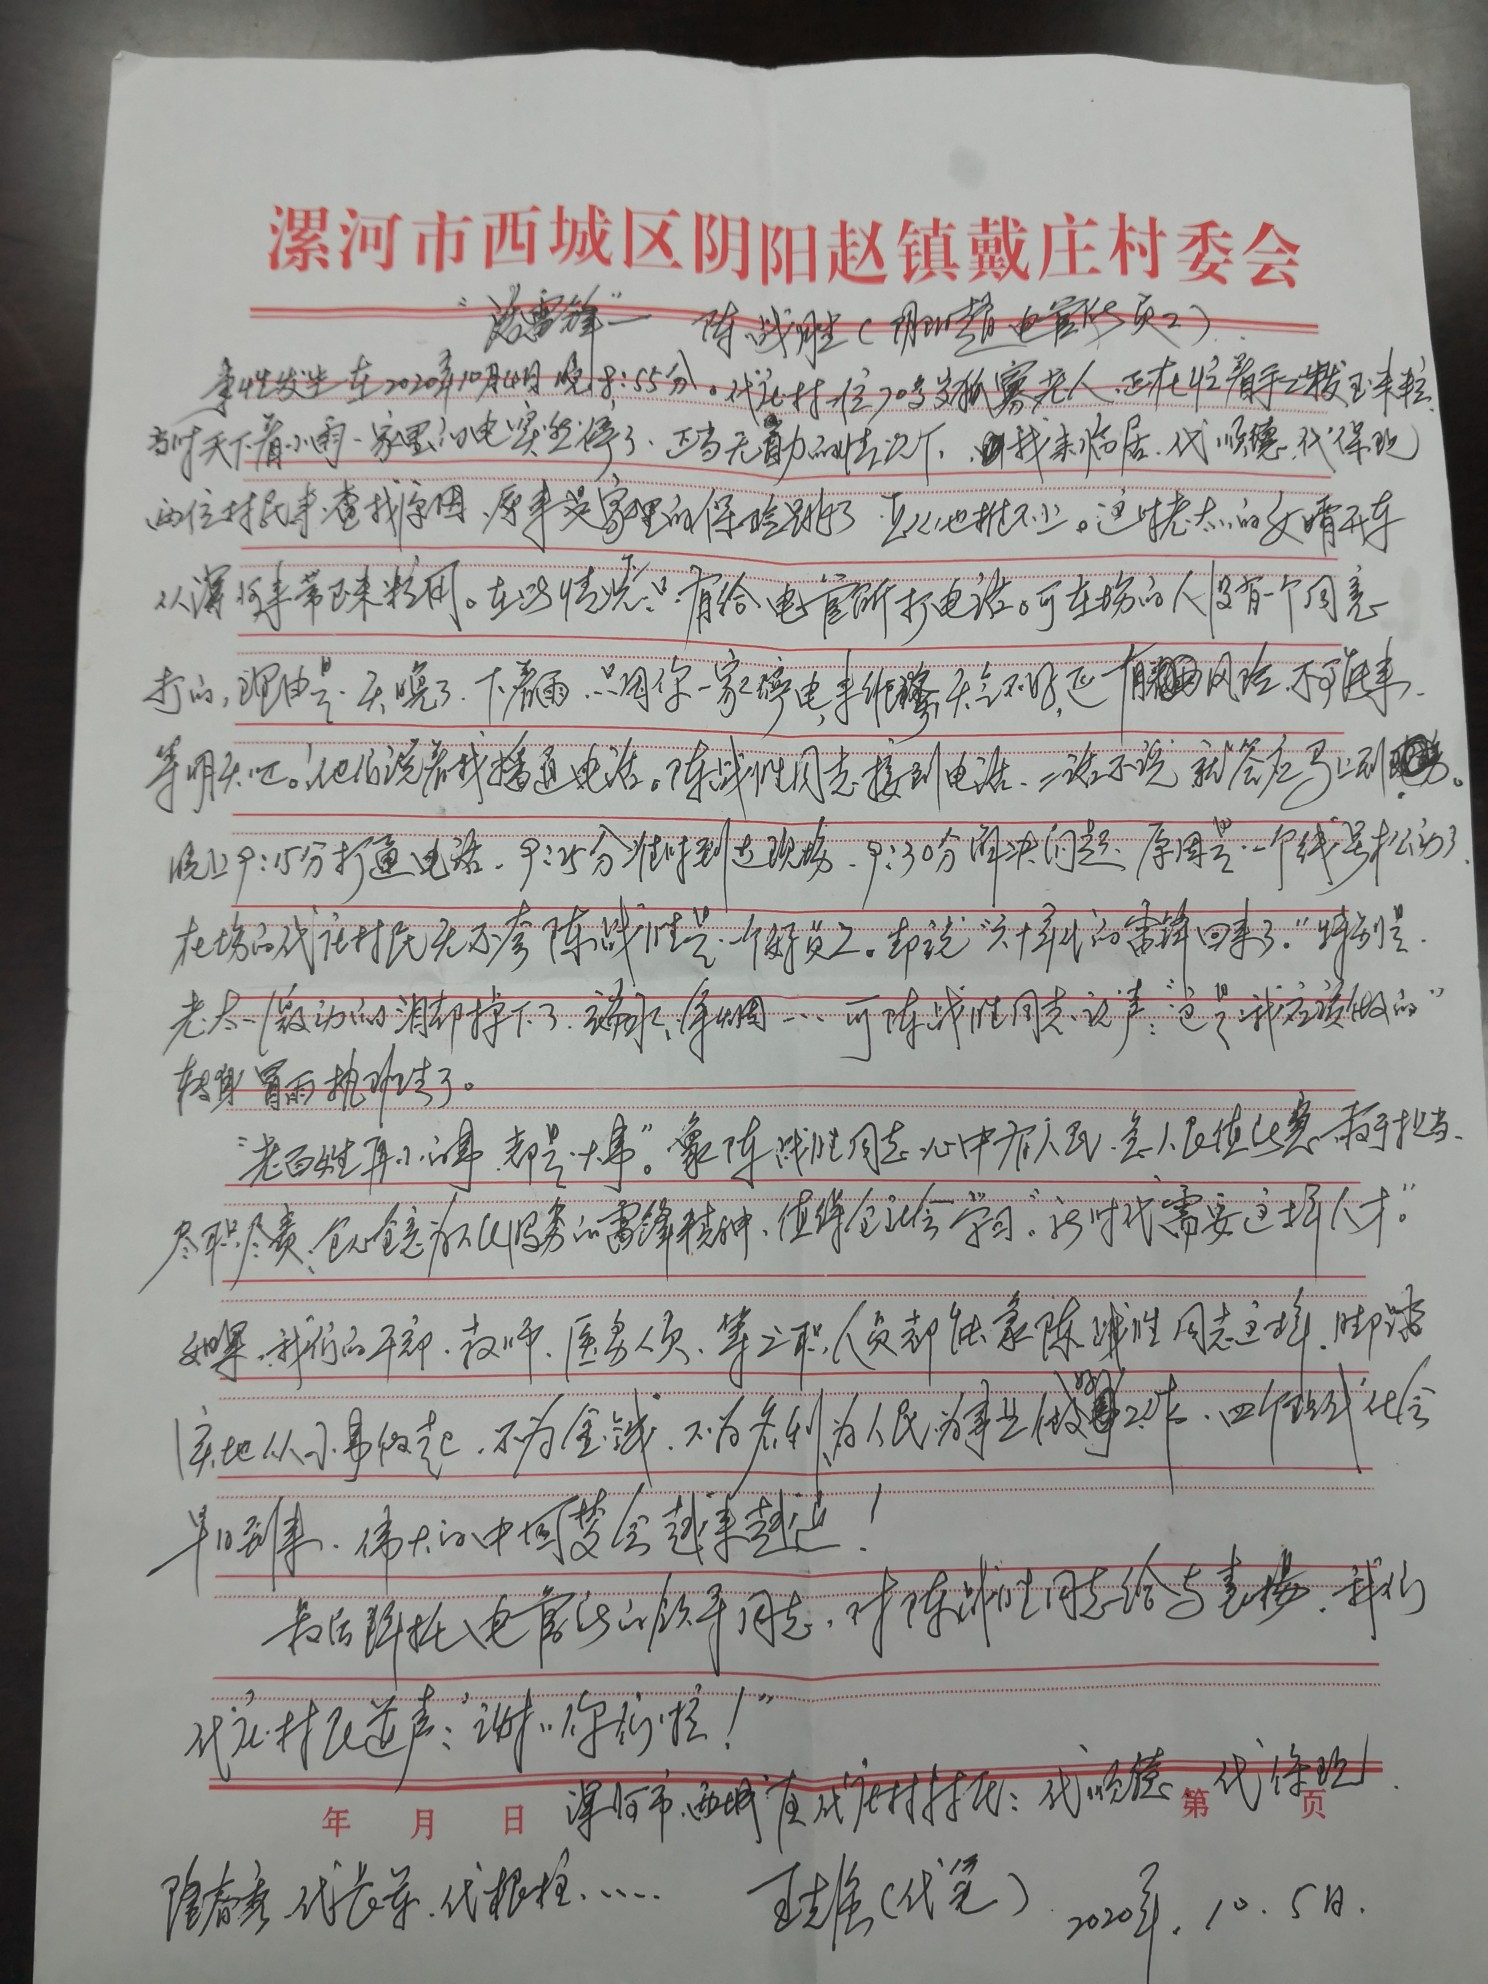 漯河市西城区阴阳赵镇戴庄村委会
"活雷锋"— 陈战胜(阴阳赵电管所员工)
事件发生在2020年10月4日晚8:55分。代庄村一位70多岁孤寡老人,正在忙着手工拨玉米粒,
当时天下着小雨,家里的电突然停了,正当无助的情况下,找来临居、代顺德、代保现
两位村民来查找原因,原来是家里的保险跳了,怎么也推不上。这时老太太的女婿开车
从漯河来带玉米粒用。在此情况只有给电管所打电话。可在场的人没有一个同意
打的,理由是:天晚了,下着雨,只因你一家停电,来维修,天气不好,还有风险,不可能来,
等明天吧。他们说着我播通电话。陈战胜同志接到电话,二话不说就答应马上到。
晚上9:15分打通电话,9:25分准时到达现场,9:30分解决问题,原因是一个线号松动了,
在场的代庄村民无不夸陈战胜是一个好员工。却说"六十年代的雷锋回来了。"特别是
老太太激动的泪都掉下了,端水、拿烟…可陈战胜同志说声:"这是我应该做的"
转身冒雨执班去了。
"老百姓再小的事,都是大事"。象陈战胜同志心中有人民,急人民值所急,敢于担当、
尽职尽责、全心全意为人民服务的雷锋精神,值得全社会学习"新时代需要这样人才"。
如果,我们的干部、教师、医务人员、等公职人员都能象陈战胜同志这样,脚踏
实地从小事做起,不为金钱,不为名利,为人民为事业做好工作,四个现代化会
早日到来,伟大的中国梦会越来越近!
最后拜托电管所的领导同志,对陈战胜同志给与表扬,我们
代庄村民道声:"谢谢你们啦!"
漯河市西城区代庄村村民:代顺德、代保现
年 月 日 第 页
陆春秀、代长革、代根柱……  王志强(代笔) 2020年.10.5日.